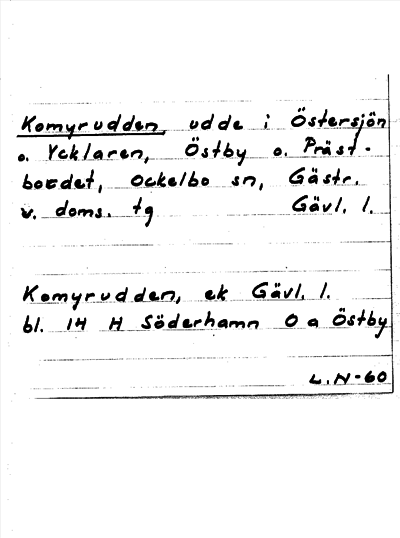 Komyrudden, udde i Östersjön
o. Ycklaren, Östby o. Präst-
bordet, Ockelbo sn, Gästr.
v. doms. tg Gävl. l.
Komyrudden, ek Gävl. l.
bl. 14 H Söderhamn 0 a Östby
L.N-60